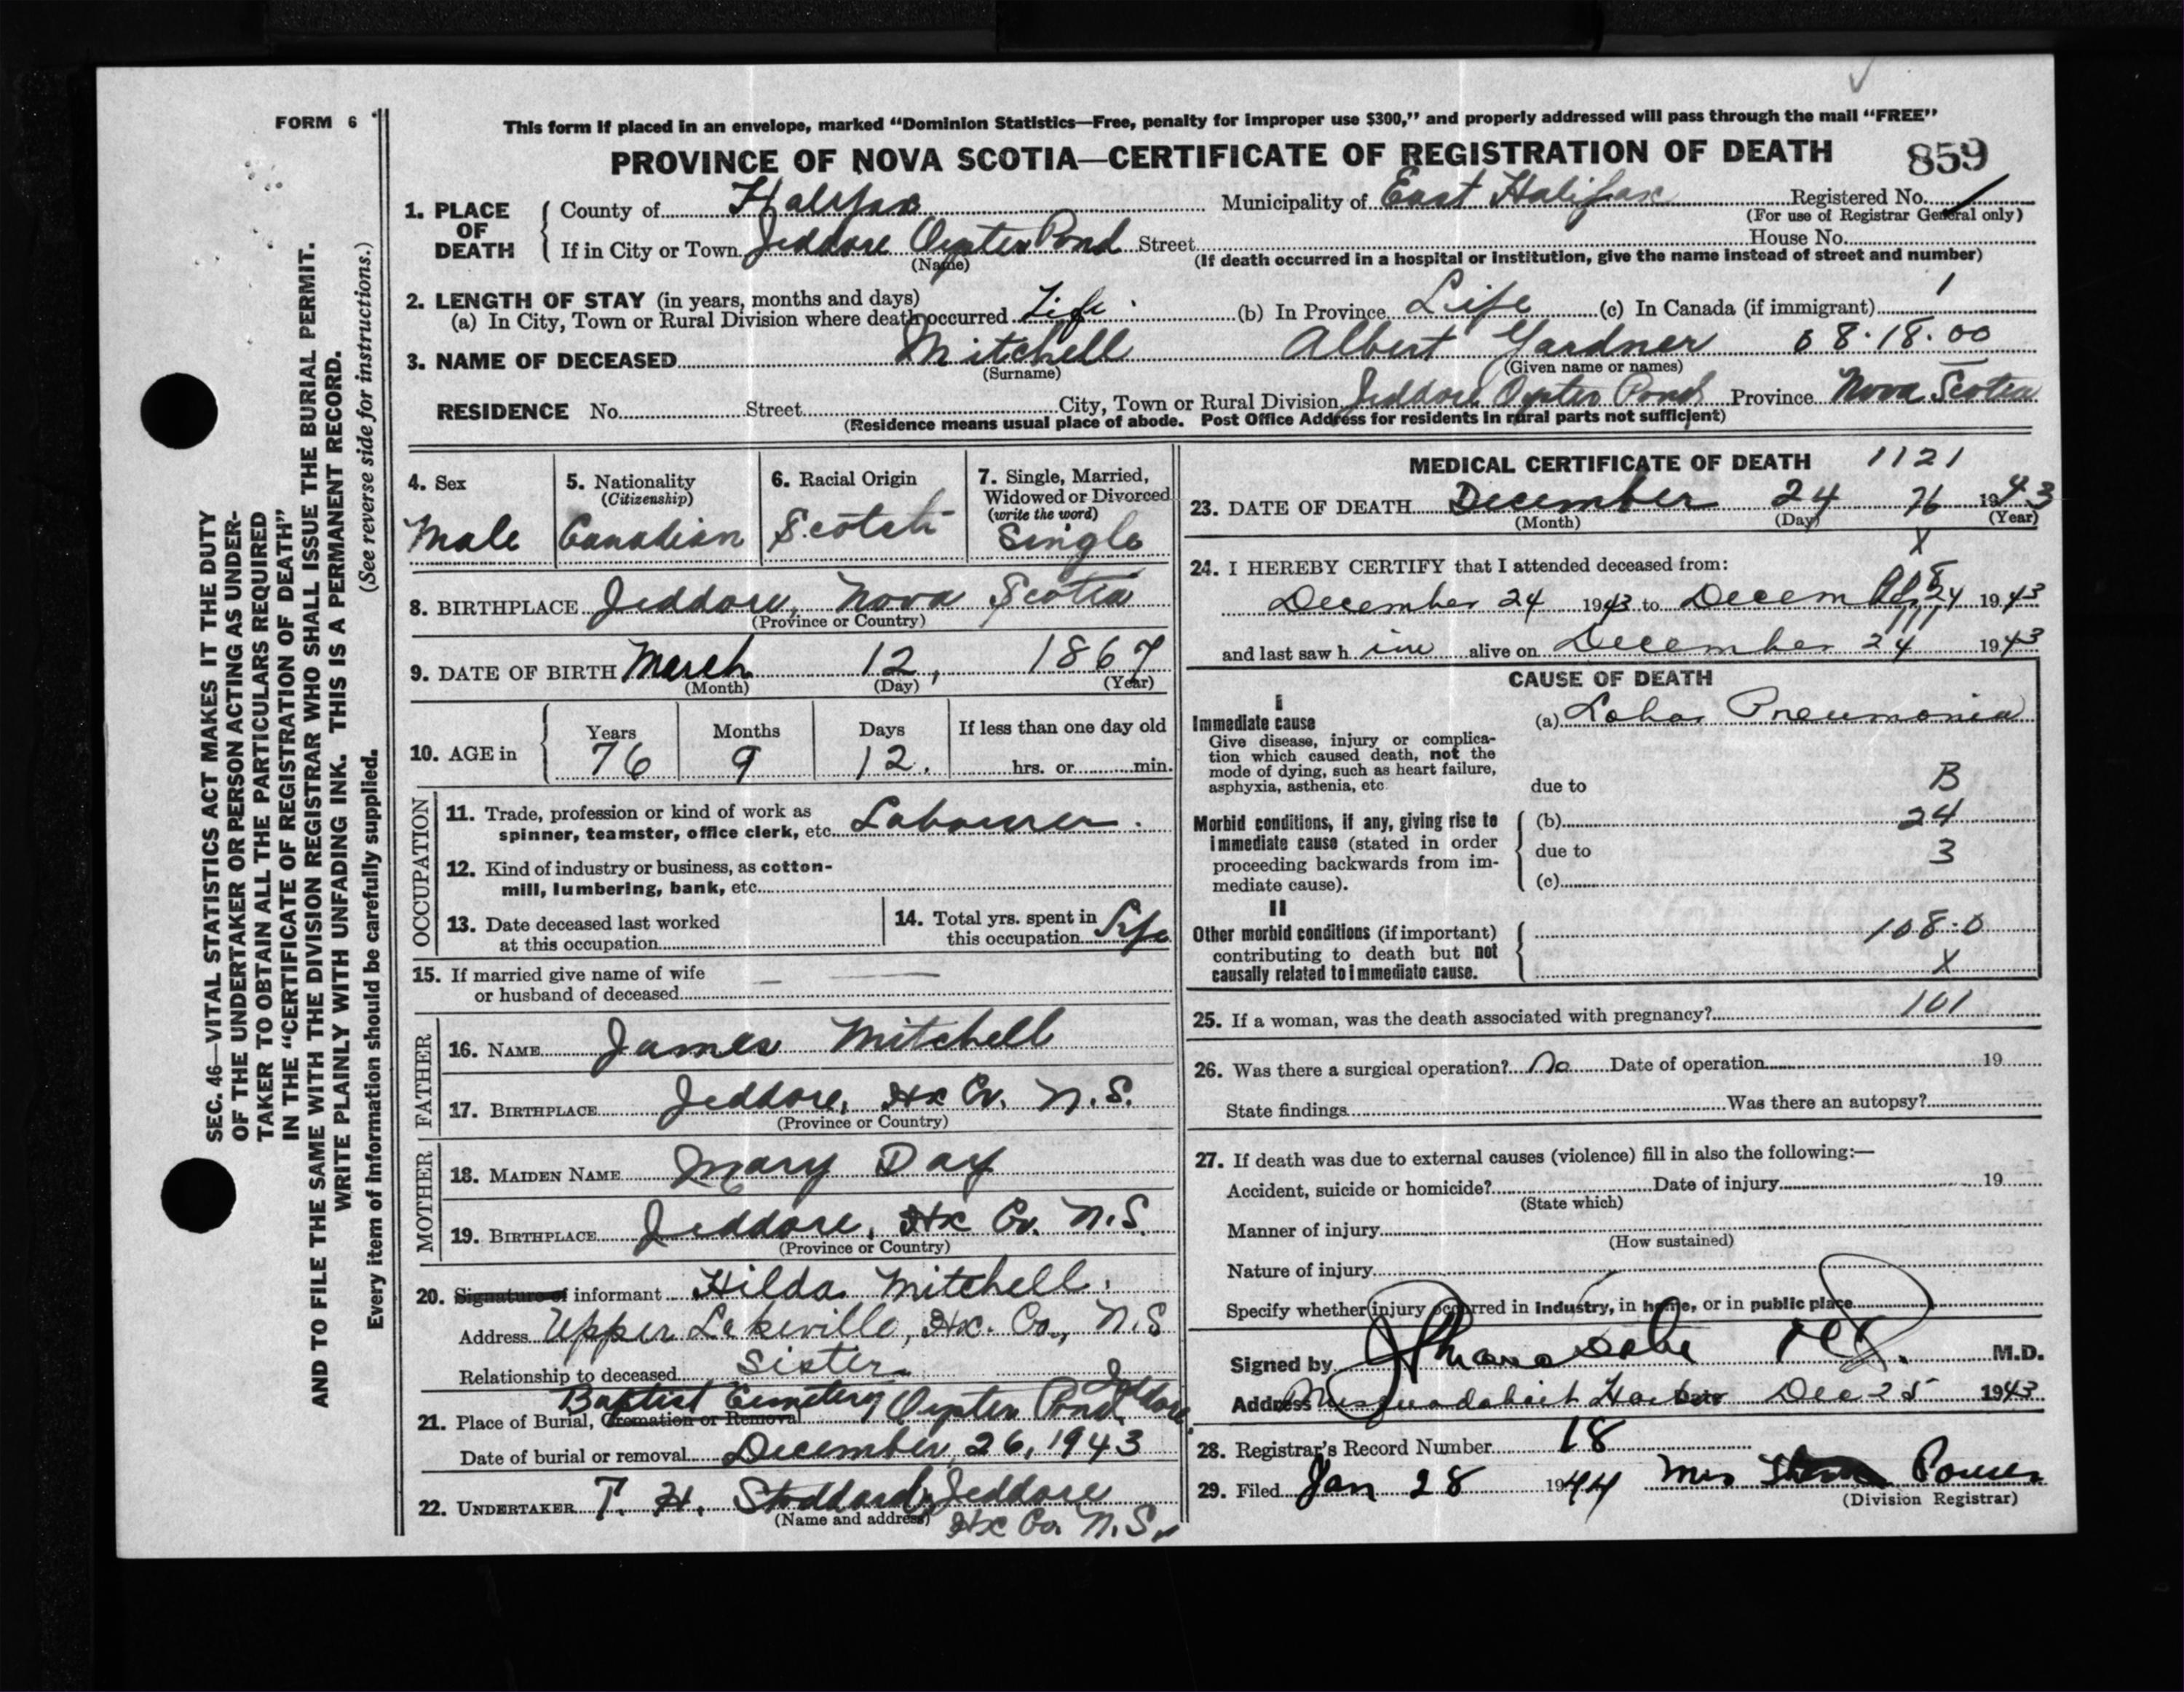 FORM 6
This form if placed in an envelope, marked “Dominion Statistics—Free, penalty for improper use $300,” and properly addressed will pass through the mail “FREE”
PROVINCE OF NOVA SCOTIA—CERTIFICATE OF REGISTRATION OF DEATH 859
1. PLACE OF DEATH
County of Halifax Municipality of East Halifax Registered No.
(For use of Registrar General only)
If in City or Town Jeddore Oyster Pond Street House No.
(Name) (If death occurred in a hospital or institution, give the name instead of street and number)
2. LENGTH OF STAY (in years, months and days)
(a) In City, Town or Rural Division where death occurred Life (b) In Province Life (c) In Canada (if immigrant)
3. NAME OF DECEASED Mitchell Albert Gardner 68.18.00
(Surname) (Given name or names)
RESIDENCE No. Street City, Town or Rural Division Jeddore Oyster Pond Province Nova Scotia
(Residence means usual place of abode. Post Office Address for residents in rural parts not sufficient)
4. Sex
Male
5. Nationality
(Citizenship)
Canadian
6. Racial Origin
Scotch
7. Single, Married,
Widowed or Divorced
(write the word)
Single
8. BIRTHPLACE Jeddore, Nova Scotia
(Province or Country)
9. DATE OF BIRTH March 12, 1867
(Month) (Day) (Year)
10. AGE in
Years Months Days If less than one day old
76 9 12. hrs. or min.
OCCUPATION
11. Trade, profession or kind of work as
spinner, teamster, office clerk, etc. Labourer.
12. Kind of industry or business, as cotton-
mill, lumbering, bank, etc.
13. Date deceased last worked
at this occupation
14. Total yrs. spent in
this occupation Life
15. If married give name of wife
or husband of deceased
FATHER
16. NAME James Mitchell
17. BIRTHPLACE Jeddore, Hx Co. N.S.
(Province or Country)
MOTHER
18. MAIDEN NAME Mary Day
19. BIRTHPLACE Jeddore, Hx Co. N.S.
(Province or Country)
20. Signature of informant Hilda Mitchell.
Address Upper Lakeville, Hx. Co., N.S
Relationship to deceased Sister
Baptist Cemetery Oyster Pond Jeddore
21. Place of Burial, Cremation or Removal
Date of burial or removal December 26, 1943
22. UNDERTAKER T. H. Stoddard, Jeddore
(Name and address) Hx Co. N.S.
MEDICAL CERTIFICATE OF DEATH 1121
23. DATE OF DEATH December 24 76 1943
(Month) (Day) (Year)
X
24. I HEREBY CERTIFY that I attended deceased from:
December 24 1943 to December 24 1943
and last saw h im alive on December 24 1943
CAUSE OF DEATH
I
Immediate cause
Give disease, injury or complica-
tion which caused death, not the
mode of dying, such as heart failure,
asphyxia, asthenia, etc.
(a) Lobar Pneumonia
due to B
Morbid conditions, if any, giving rise to
immediate cause (stated in order
proceeding backwards from im-
mediate cause).
(b) 24
due to 3
(c)
II
Other morbid conditions (if important)
contributing to death but not
causally related to immediate cause.
108.0
X
25. If a woman, was the death associated with pregnancy? 101
26. Was there a surgical operation? No Date of operation 19
State findings Was there an autopsy?
27. If death was due to external causes (violence) fill in also the following:—
Accident, suicide or homicide? Date of injury 19
(State which)
Manner of injury
(How sustained)
Nature of injury
Specify whether injury occurred in industry, in home, or in public place
Signed by M.D.
Address Musquodoboit Harbor Date Dec 25 1943
28. Registrar's Record Number 18
29. Filed Jan 28 1944 Mrs Power
(Division Registrar)
SEC. 46—VITAL STATISTICS ACT MAKES IT THE DUTY
OF THE UNDERTAKER OR PERSON ACTING AS UNDER-
TAKER TO OBTAIN ALL THE PARTICULARS REQUIRED
IN THE “CERTIFICATE OF REGISTRATION OF DEATH”
AND TO FILE THE SAME WITH THE DIVISION REGISTRAR WHO SHALL ISSUE THE BURIAL PERMIT.
WRITE PLAINLY WITH UNFADING INK. THIS IS A PERMANENT RECORD.
(See reverse side for instructions.)
Every item of information should be carefully supplied.